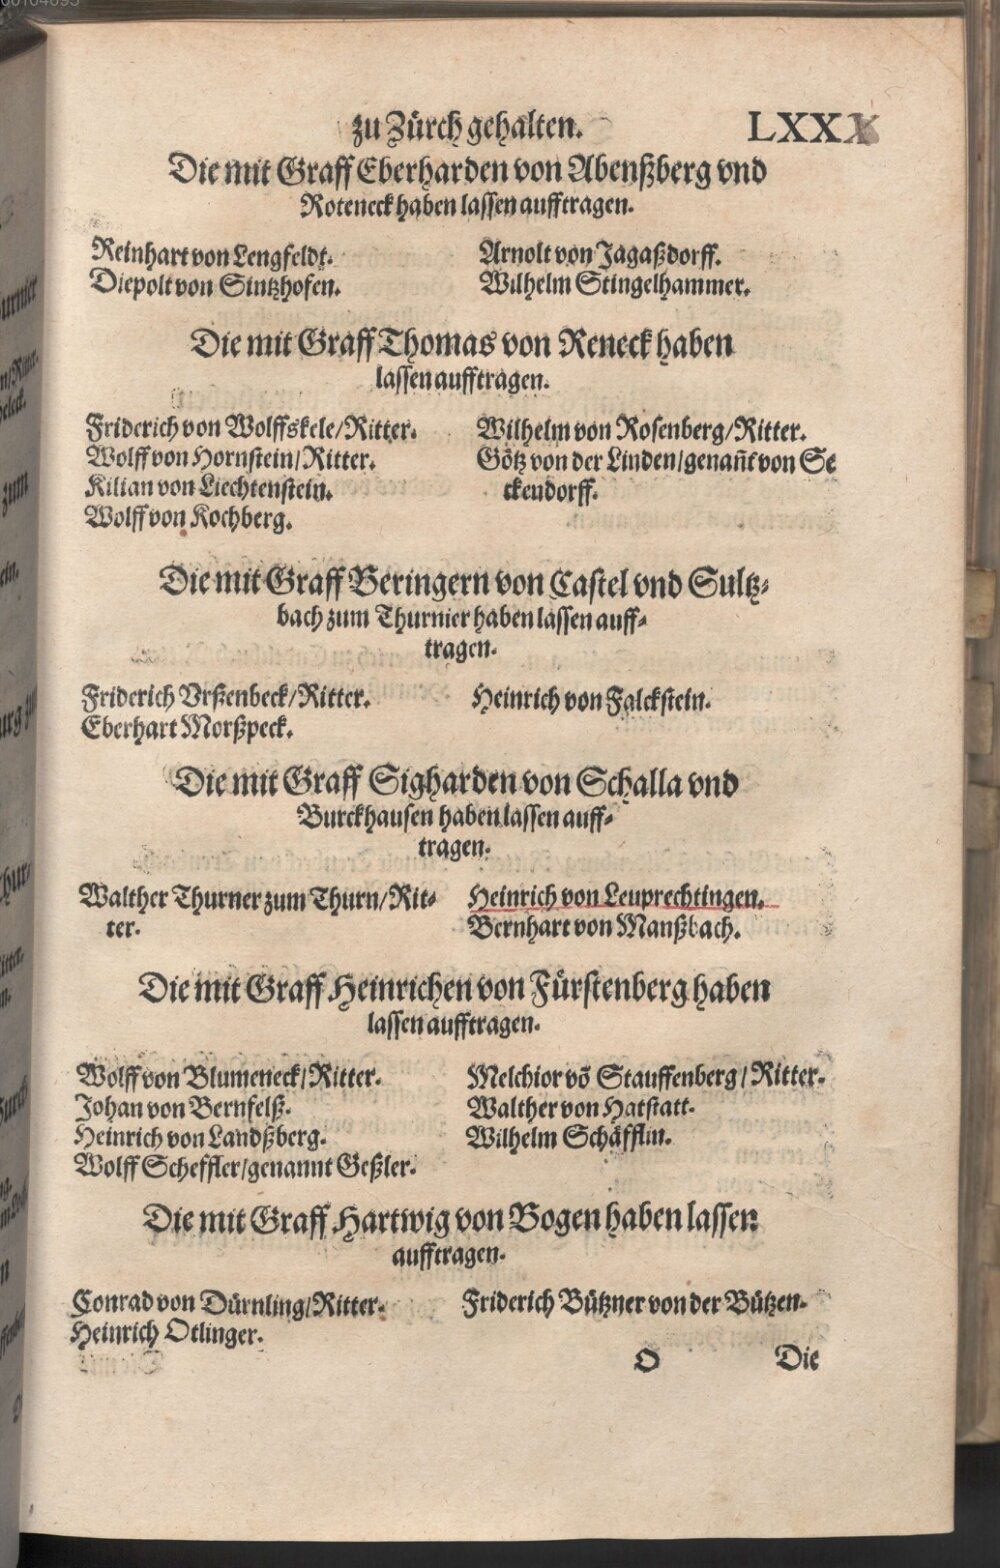 zu Zürch gehalten. LXXX
Die mit Graff Eberharden von Abenßberg vnd
Roteneck haben lassen aufftragen.
Reinhart von Lengfeldt.
Diepolt von Sintzhofen.
Arnolt von Jagaßdorff.
Wilhelm Stingelhammer.
Die mit Graff Thomas von Reneck haben
lassen aufftragen.
Friderich von Wolffskele/Ritter.
Wolff von Hornstein/Ritter.
Kilian von Liechtenstein.
Wolff von Kochberg.
Wilhelm von Rosenberg/Ritter.
Götz von der Linden/genañt von Se
ckendorff.
Die mit Graff Beringern von Castel vnd Sultz⸗
bach zum Thurnier haben lassen auff⸗
tragen.
Friderich Vrßenbeck/Ritter.
Eberhart Morßpeck.
Heinrich von Falckstein.
Die mit Graff Sigharden von Schalla vnd
Burckhausen haben lassen auff⸗
tragen.
Walther Thurner zum Thurn/Rit⸗
ter.
Heinrich von Leuprechtingen.
Bernhart von Manßbach.
Die mit Graff Heinrichen von Fürstenberg haben
lassen aufftragen.
Wolff von Blumeneck/Ritter.
Johan von Bernfelß.
Heinrich von Landßberg.
Wolff Scheffler/genannt Geßler.
Melchior võ Stauffenberg/Ritter.
Walther von Hatstatt.
Wilhelm Schäfflin.
Die mit Graff Hartwig von Bogen haben lassen
aufftragen.
Conrad von Dürnling/Ritter.
Heinrich Otlinger.
Friderich Bützner von der Bützen.
O Die